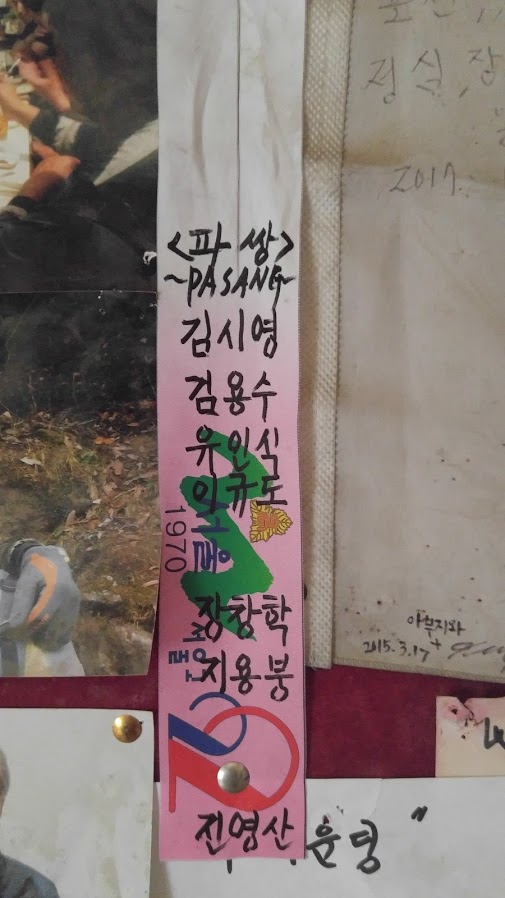 <파쌍>
~PASANG~
김시영
김용수
유인식
이규도
1970
장창학
지용붕
진영산
정실, 장
2017.
아부지와
2015.3.17
운영"